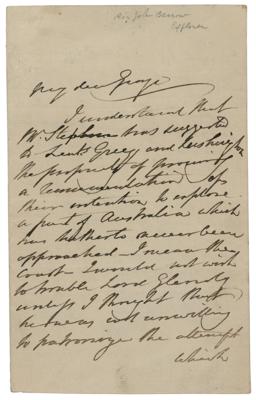 Sir John Barrow
Explorer
My dear George
I understand that
Mr Stephen has suggested
to Lieuts Grey and Lushington
the propriety of procuring
a recommendation of
their intention to explore
a part of Australia which
has hitherto never been
approached – I mean the
coast I would not wish
to trouble Lord Glenelg
unless I thought that
he was not unwilling
to patronize the attempt
which